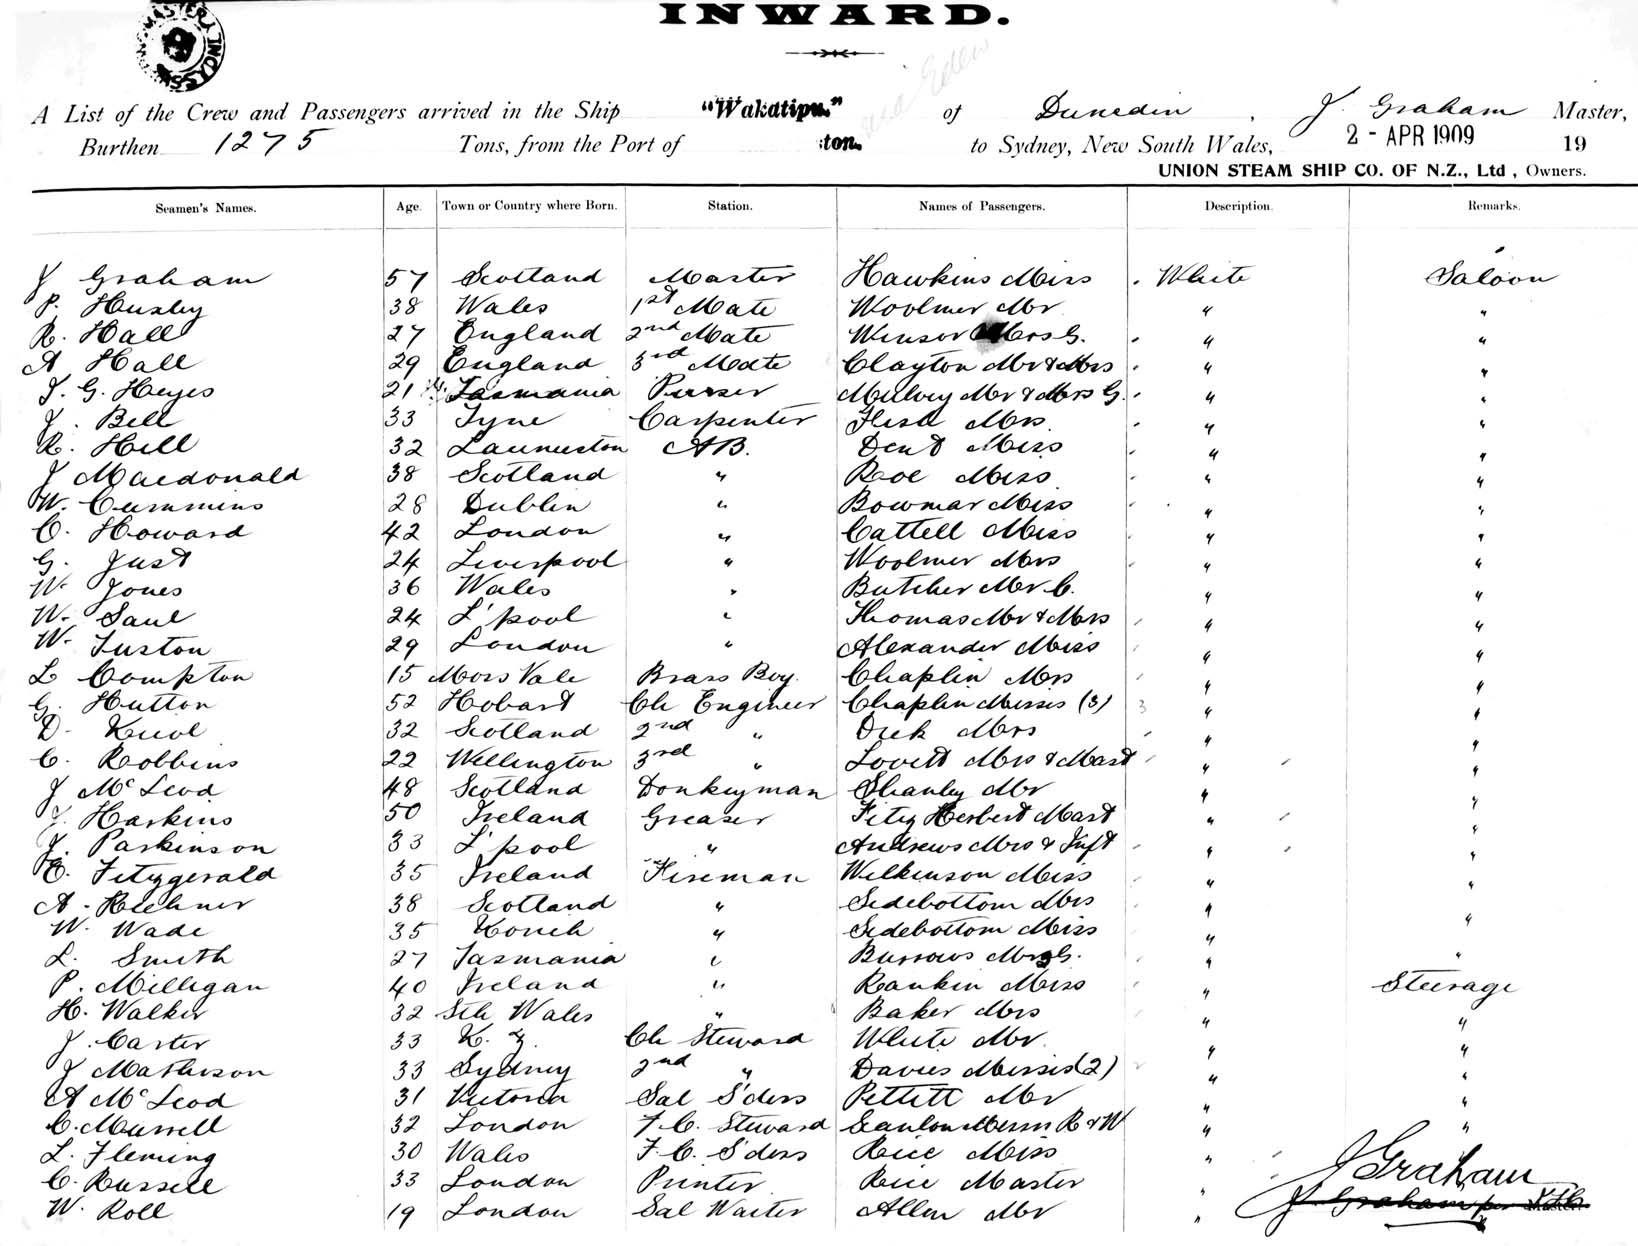 INWARD.
A List of the Crew and Passengers arrived in the Ship "Wakatipu." of Dunedin, J. Graham Master,
Burthen 1275 Tons, from the Port of ton. to Sydney, New South Wales, 2 - APR 1909 19
UNION STEAM SHIP CO. OF N.Z., Ltd, Owners.
Seamen's Names. Age. Town or Country where Born. Station. Names of Passengers. Description. Remarks.
J Graham 57 Scotland Master Hawkins Miss White Saloon
P. Huxley 38 Wales 1st Mate Woolmer Mr " "
R. Hall 27 England 2nd Mate Winsor Mrs G. " "
A Hall 29 England 3rd Mate Clayton Mr & Mrs " "
J. G. Heyes 21 Tasmania Purser Mulvey Mr & Mrs G. " "
J. Bell 33 Tyne Carpenter Mrs " "
R. Hill 32 Launceston AB. Dent Miss " "
J Macdonald 38 Scotland " Roe Miss " "
W. Cummins 28 Dublin " Bowmar Miss " "
C. Howard 42 London " Cattell Miss " "
G. Just 24 Liverpool " Woolmer Mrs " "
W. Jones 36 Wales " Butcher Mr C. " "
W. Saul 24 L'pool " Thomas Mr & Mrs " "
W. Tuston 29 London " Alexander Miss " "
L Compton 15 Moss Vale Brass Boy. Chaplin Mrs " "
G. Hutton 52 Hobart Ch Engineer Chaplin Misses (3) 3 " "
D. 32 Scotland 2nd " Dick Mrs " "
C. Robbins 22 Wellington 3rd " Lovett Mrs & Mast " "
J McLeod 48 Scotland Donkeyman Shanley Mr " "
J. Harkins 50 Ireland Greaser Fitz Herbert Mast " "
J. Parkinson 33 L'pool " Andrews Mrs & Inft " "
E. Fitzgerald 35 Ireland Fireman Wilkinson Miss " "
A. 38 Scotland " Sidebottom Mrs " "
W. Wade 35 " Sidebottom Miss " "
L. Smith 27 Tasmania " Burrows Mr G. " "
P. Milligan 40 Ireland " Rankin Miss " Steerage
H. Walker 32 Sth Wales " Baker Mrs " "
J. Carter 33 N. Z. Ch Steward White Mr. " "
J Matheson 33 Sydney 2nd " Davies Misses (2) " "
A McLeod 31 Victoria Sal S'ders Pettitt Mr " "
C. Murrell 32 London F. C. Steward Scanlon Messrs R & W " "
L. Fleming 30 Wales F. C. S'ders Rice Miss "
C. Russell 33 London Printer Rice Master " J Graham
W. Roll 19 London Sal Waiter Allen Mr " J. Graham per